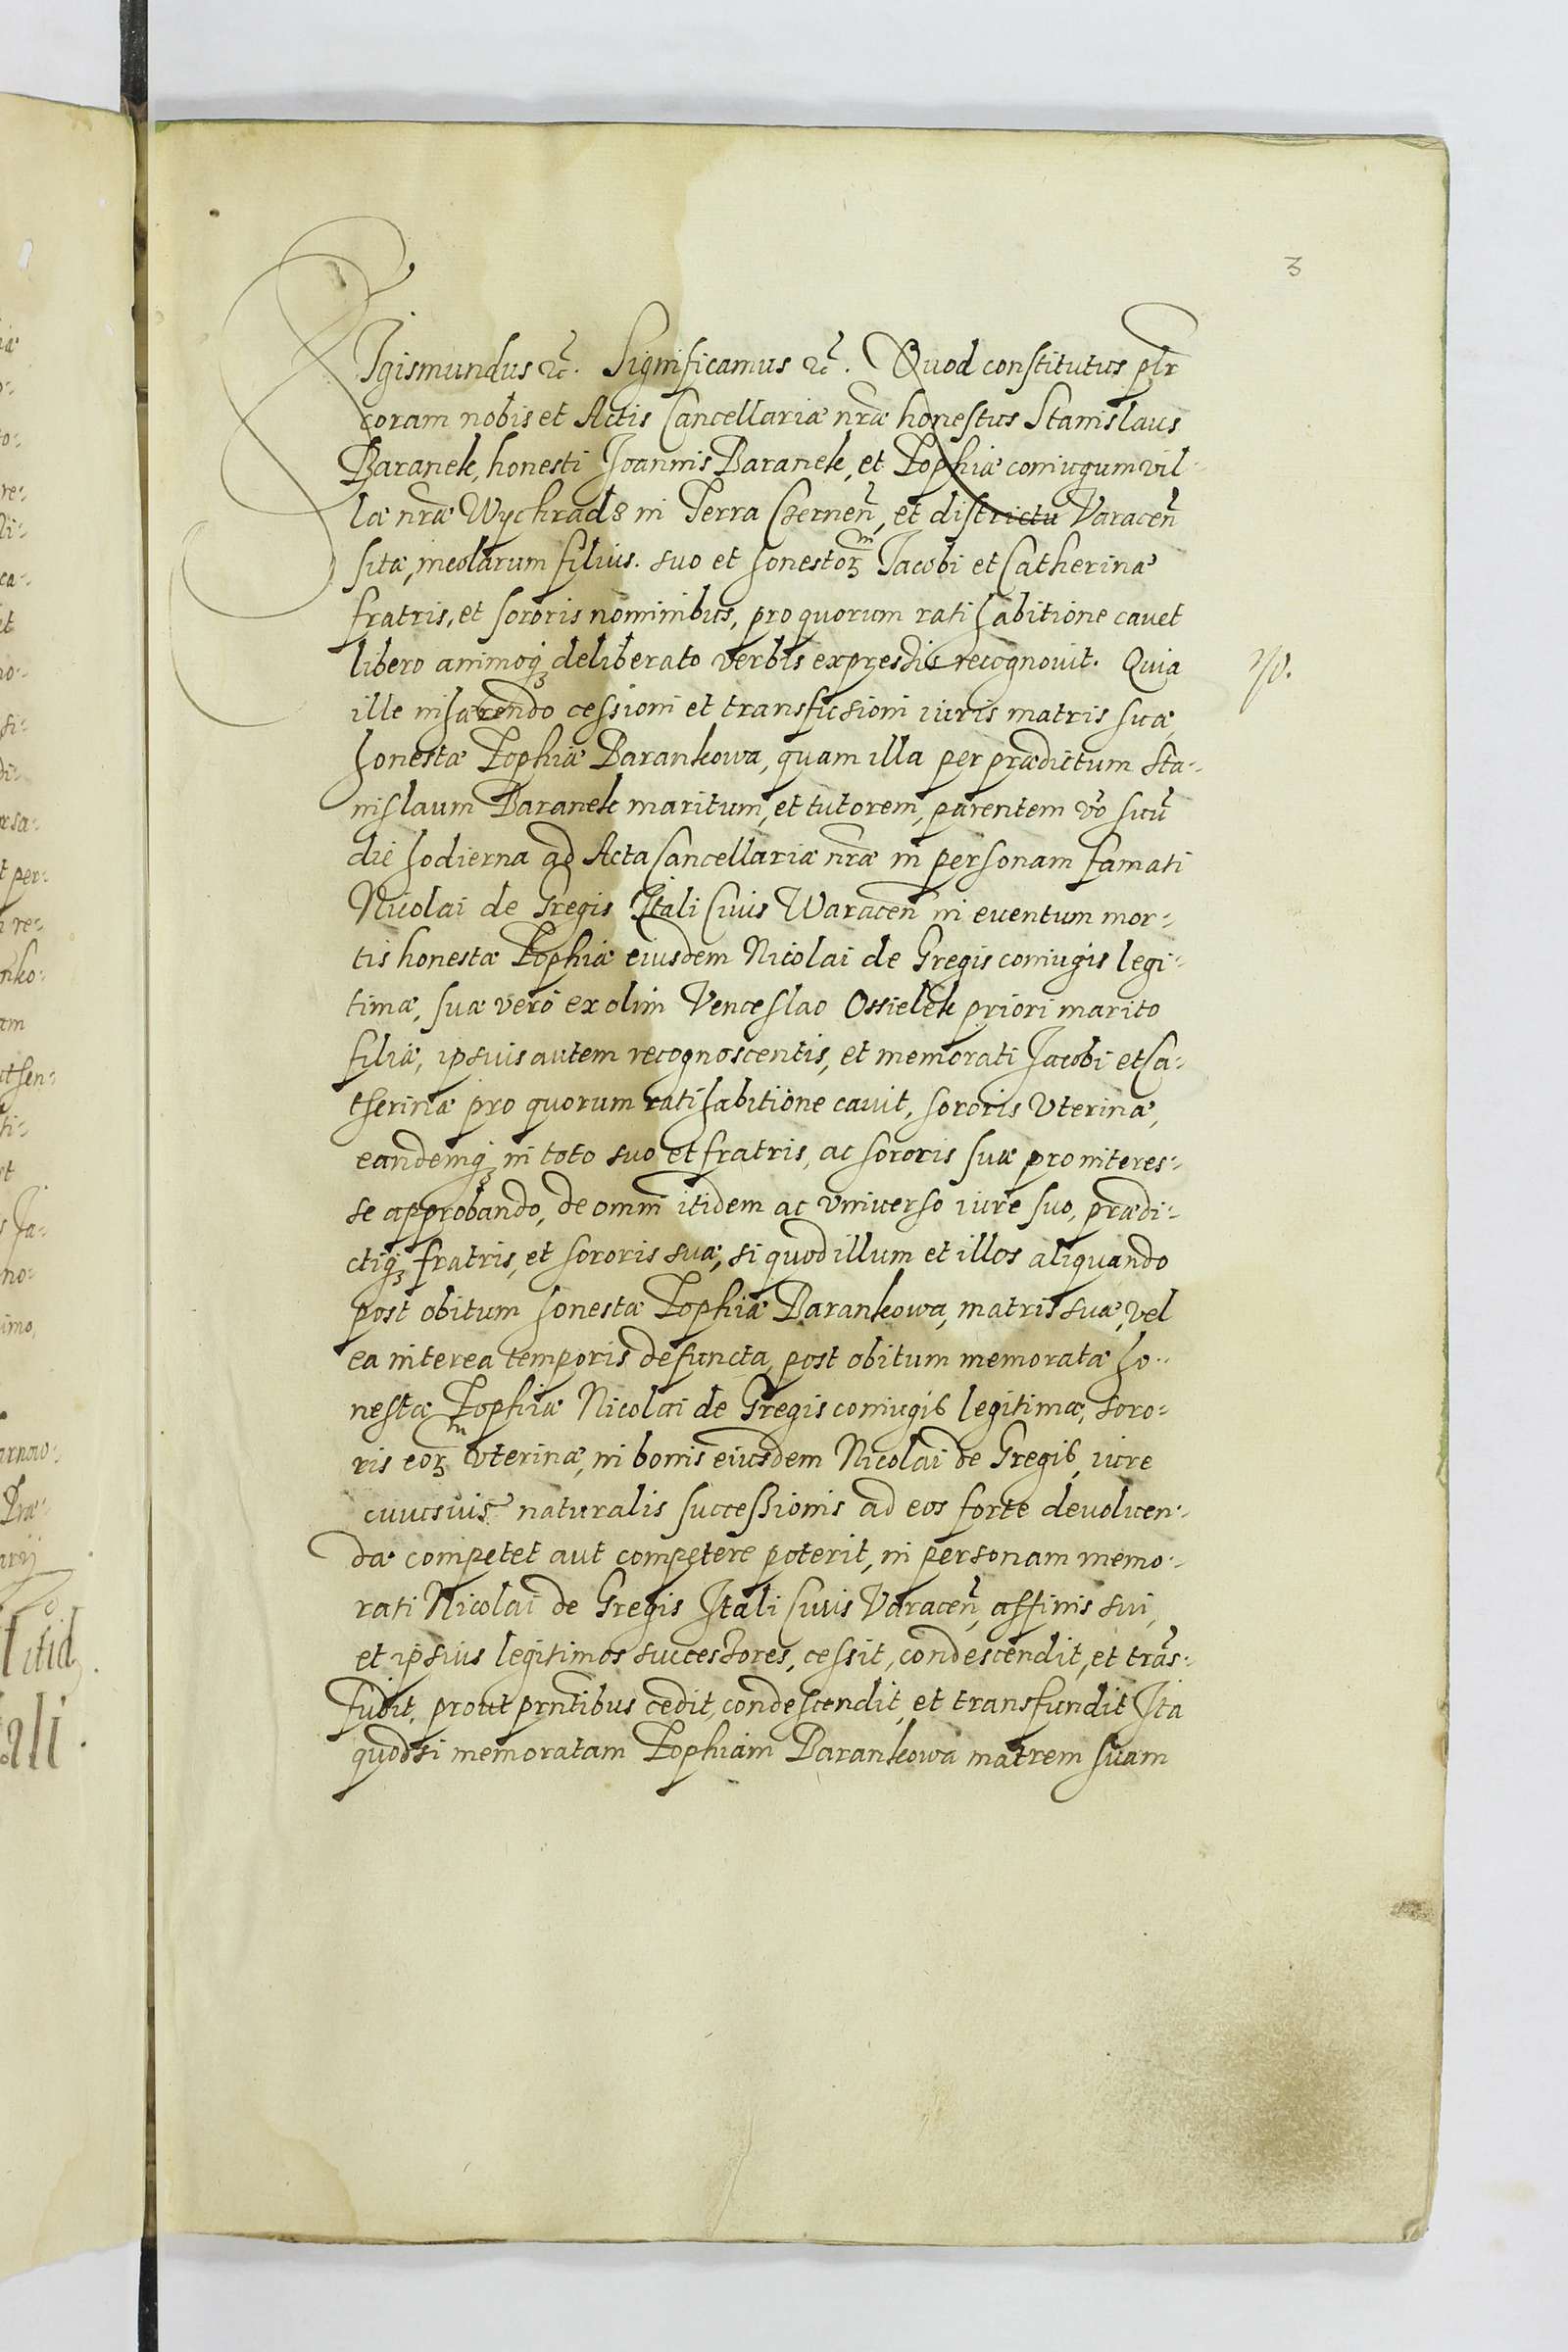 3
Sigismundus etc. Significamus etc. Quod constitutus plr
coram nobis et Actis Cancellariæ nræ honestus Stanislaus
Baranek, honesti Joannis Baranek, et Zophiæ coniugum vil-
læ nræ Wychradz in Terra Chernen, et districtu Varacen
sitæ, incolarum filius. suo et honestorum Jacobi et Catherinæ
fratris, et sororis nominibus, pro quorum rati habitione cavet
libero animoq deliberato verbis expressis recognovit. Quia
ille inhærendo cessioni et transfusioni iuris matris suæ,
honestæ Zophiæ Barankowa, quam illa per prædictum Sta-
nislaum Baranek maritum, et tutorem, parentem vo suu
die hodierna ad Acta Cancellariæ nræ in personam famati
Nicolai de Gregis Itali Civis Waracen in eventum mor-
tis honestæ Zophiæ eiusdem Nicolai de Gregis coniugis legi-
timæ, suæ vero ex olim Venceslao Ossielek priori marito
filiæ, ipsuis autem recognoscentis, et memorati Jacobi et Ca-
therinæ pro quorum rati habitione cavit, sororis Vterinæ,
eandemq in toto suo et fratris, ac sororis suæ pro interes-
se approbando, de omni itidem ac vniverso iure suo, prædi-
ctiq fratris, et sororis suæ, si quod illum et illos aliquando
post obitum honestæ Zophiæ Barankowa, matris suæ, vel
ea interea temporis defuncta, post obitum memoratæ ho-
nestæ Zophiæ Nicolai de Gregis coniugis legitimæ, soro-
ris eorum vterinæ, in bonis eiusdem Nicolai de Gregis, iure
cuiusvis naturalis successionis ad eos forte devoluen-
dæ competet aut competere poterit, in personam memo-
rati Nicolai de Gregis Itali Civis Varacen, affinis sui,
et ipsius legitimos successores, cessit, condescendit, et tras-
fudit, prout prntibus cedit, condescendit, et transfundit Ita
quod si memoratam Zophiam Barankowa matrem suam